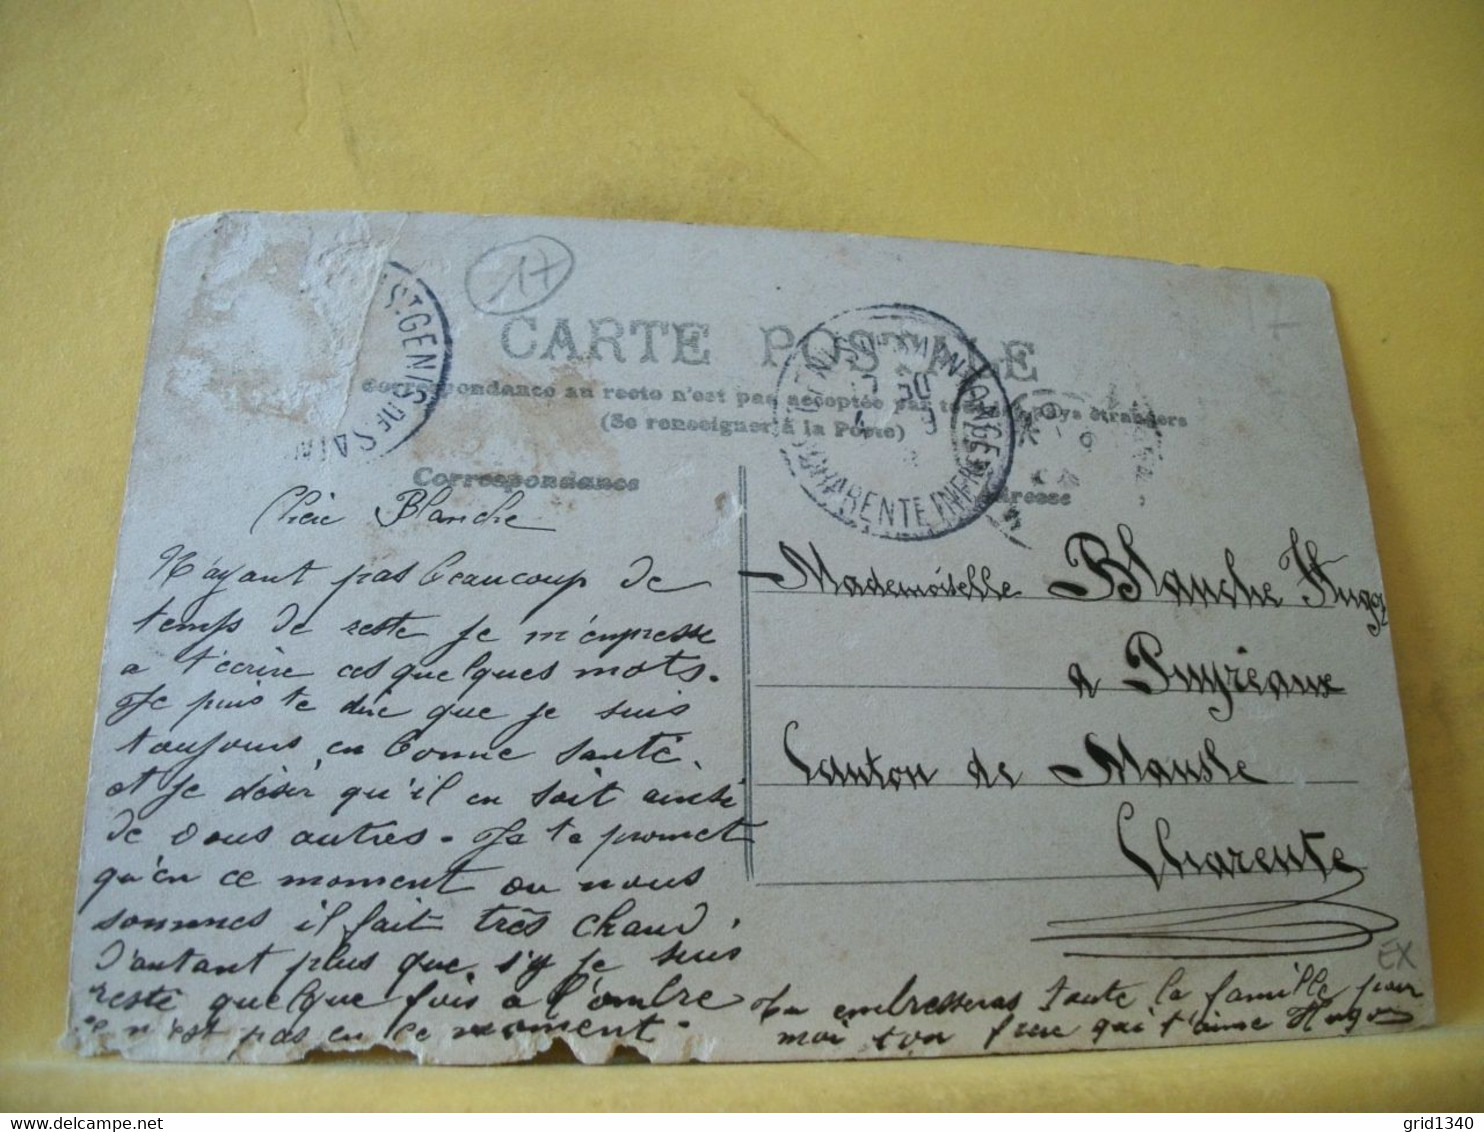 17
17
ST GENIS DE SAINT
CARTE POSTALE
Correspondance au recto n'est pas acceptée par tous les pays étrangers
(Se renseigner à la Poste)
GENIS DE SAINTONGE
CHARENTE INFRE
Correspondance
Adresse
Chère Blanche
N'ayant pas beaucoup de
temps de reste je m'empresse
a t'écrire ces quelques mots.
Je puis te dire que je suis
toujours en bonne santé.
et je désir qu'il en soit ainsi
de vous autres. Je te promet
qu'en ce moment ou nous
sommes il fait très chaud.
D'autant plus que s'y je suis
resté quelque fois a l'ombre
ce n'est pas en ce moment.
Mademoiselle Blanche Hugon
a Puyréaux
Canton de Mansle
Charente
EX
Tu embresseras toute la famille pour
moi ton frère qui t'aime Hugon
grid1340